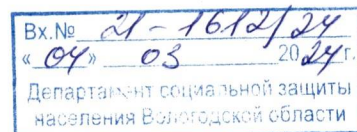 Вх.№ 21-1612/24
«04» 03 2024г.
Департамент социальной защиты
населения Вологодской области